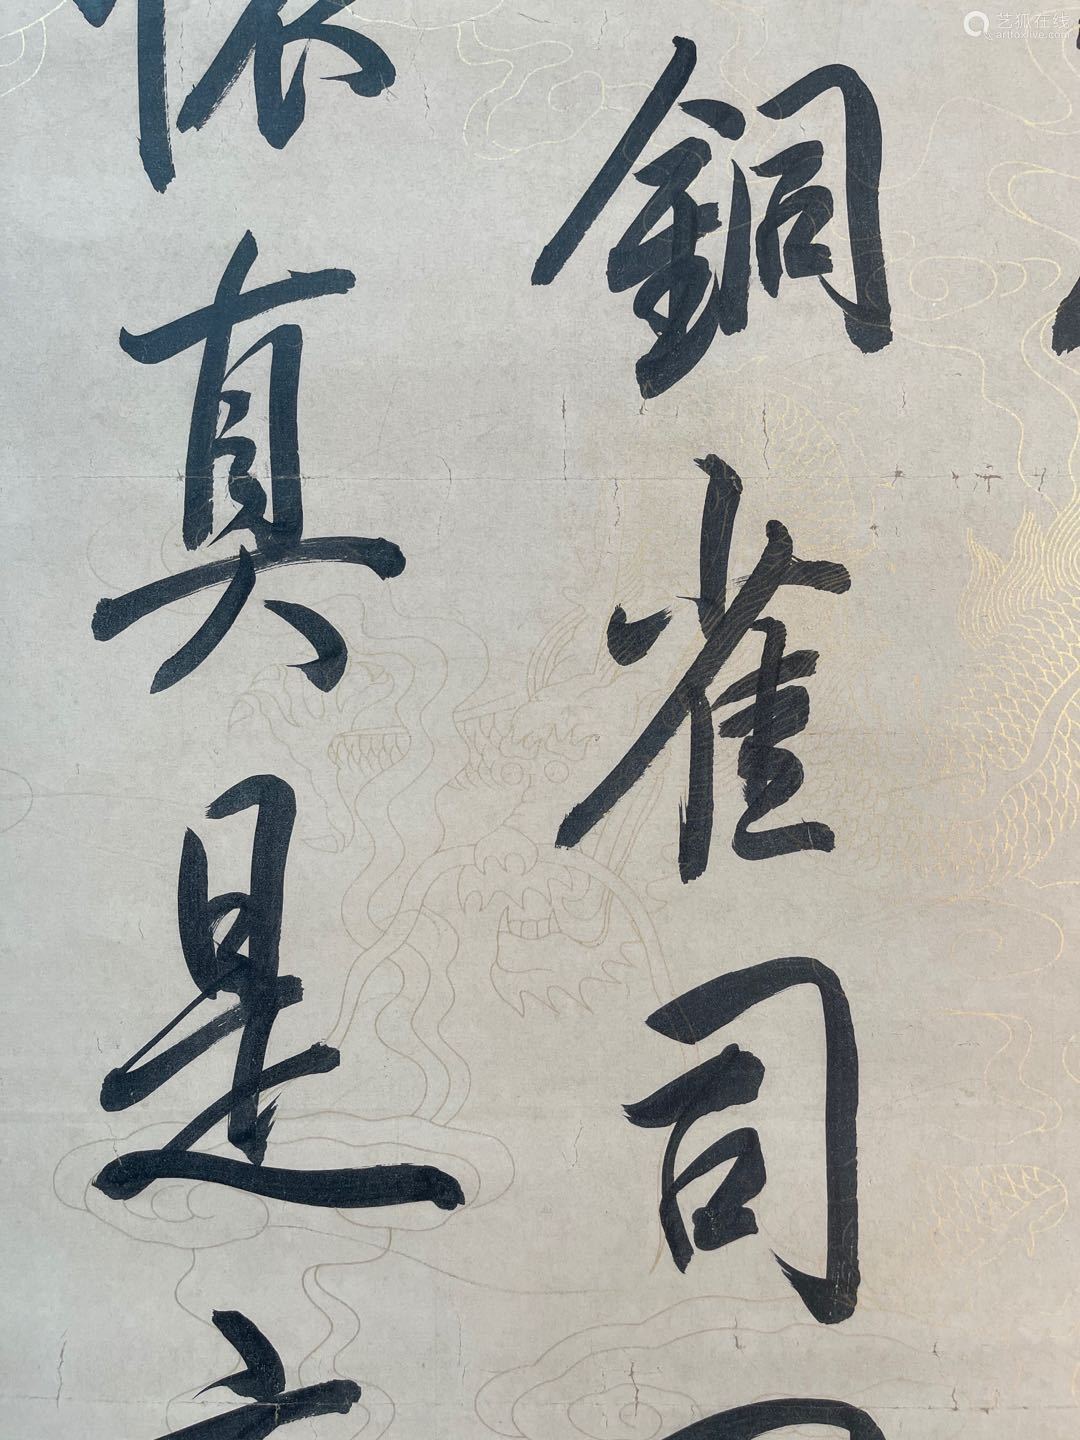 銅雀司
真是
艺狐在线
artfoxlive.com